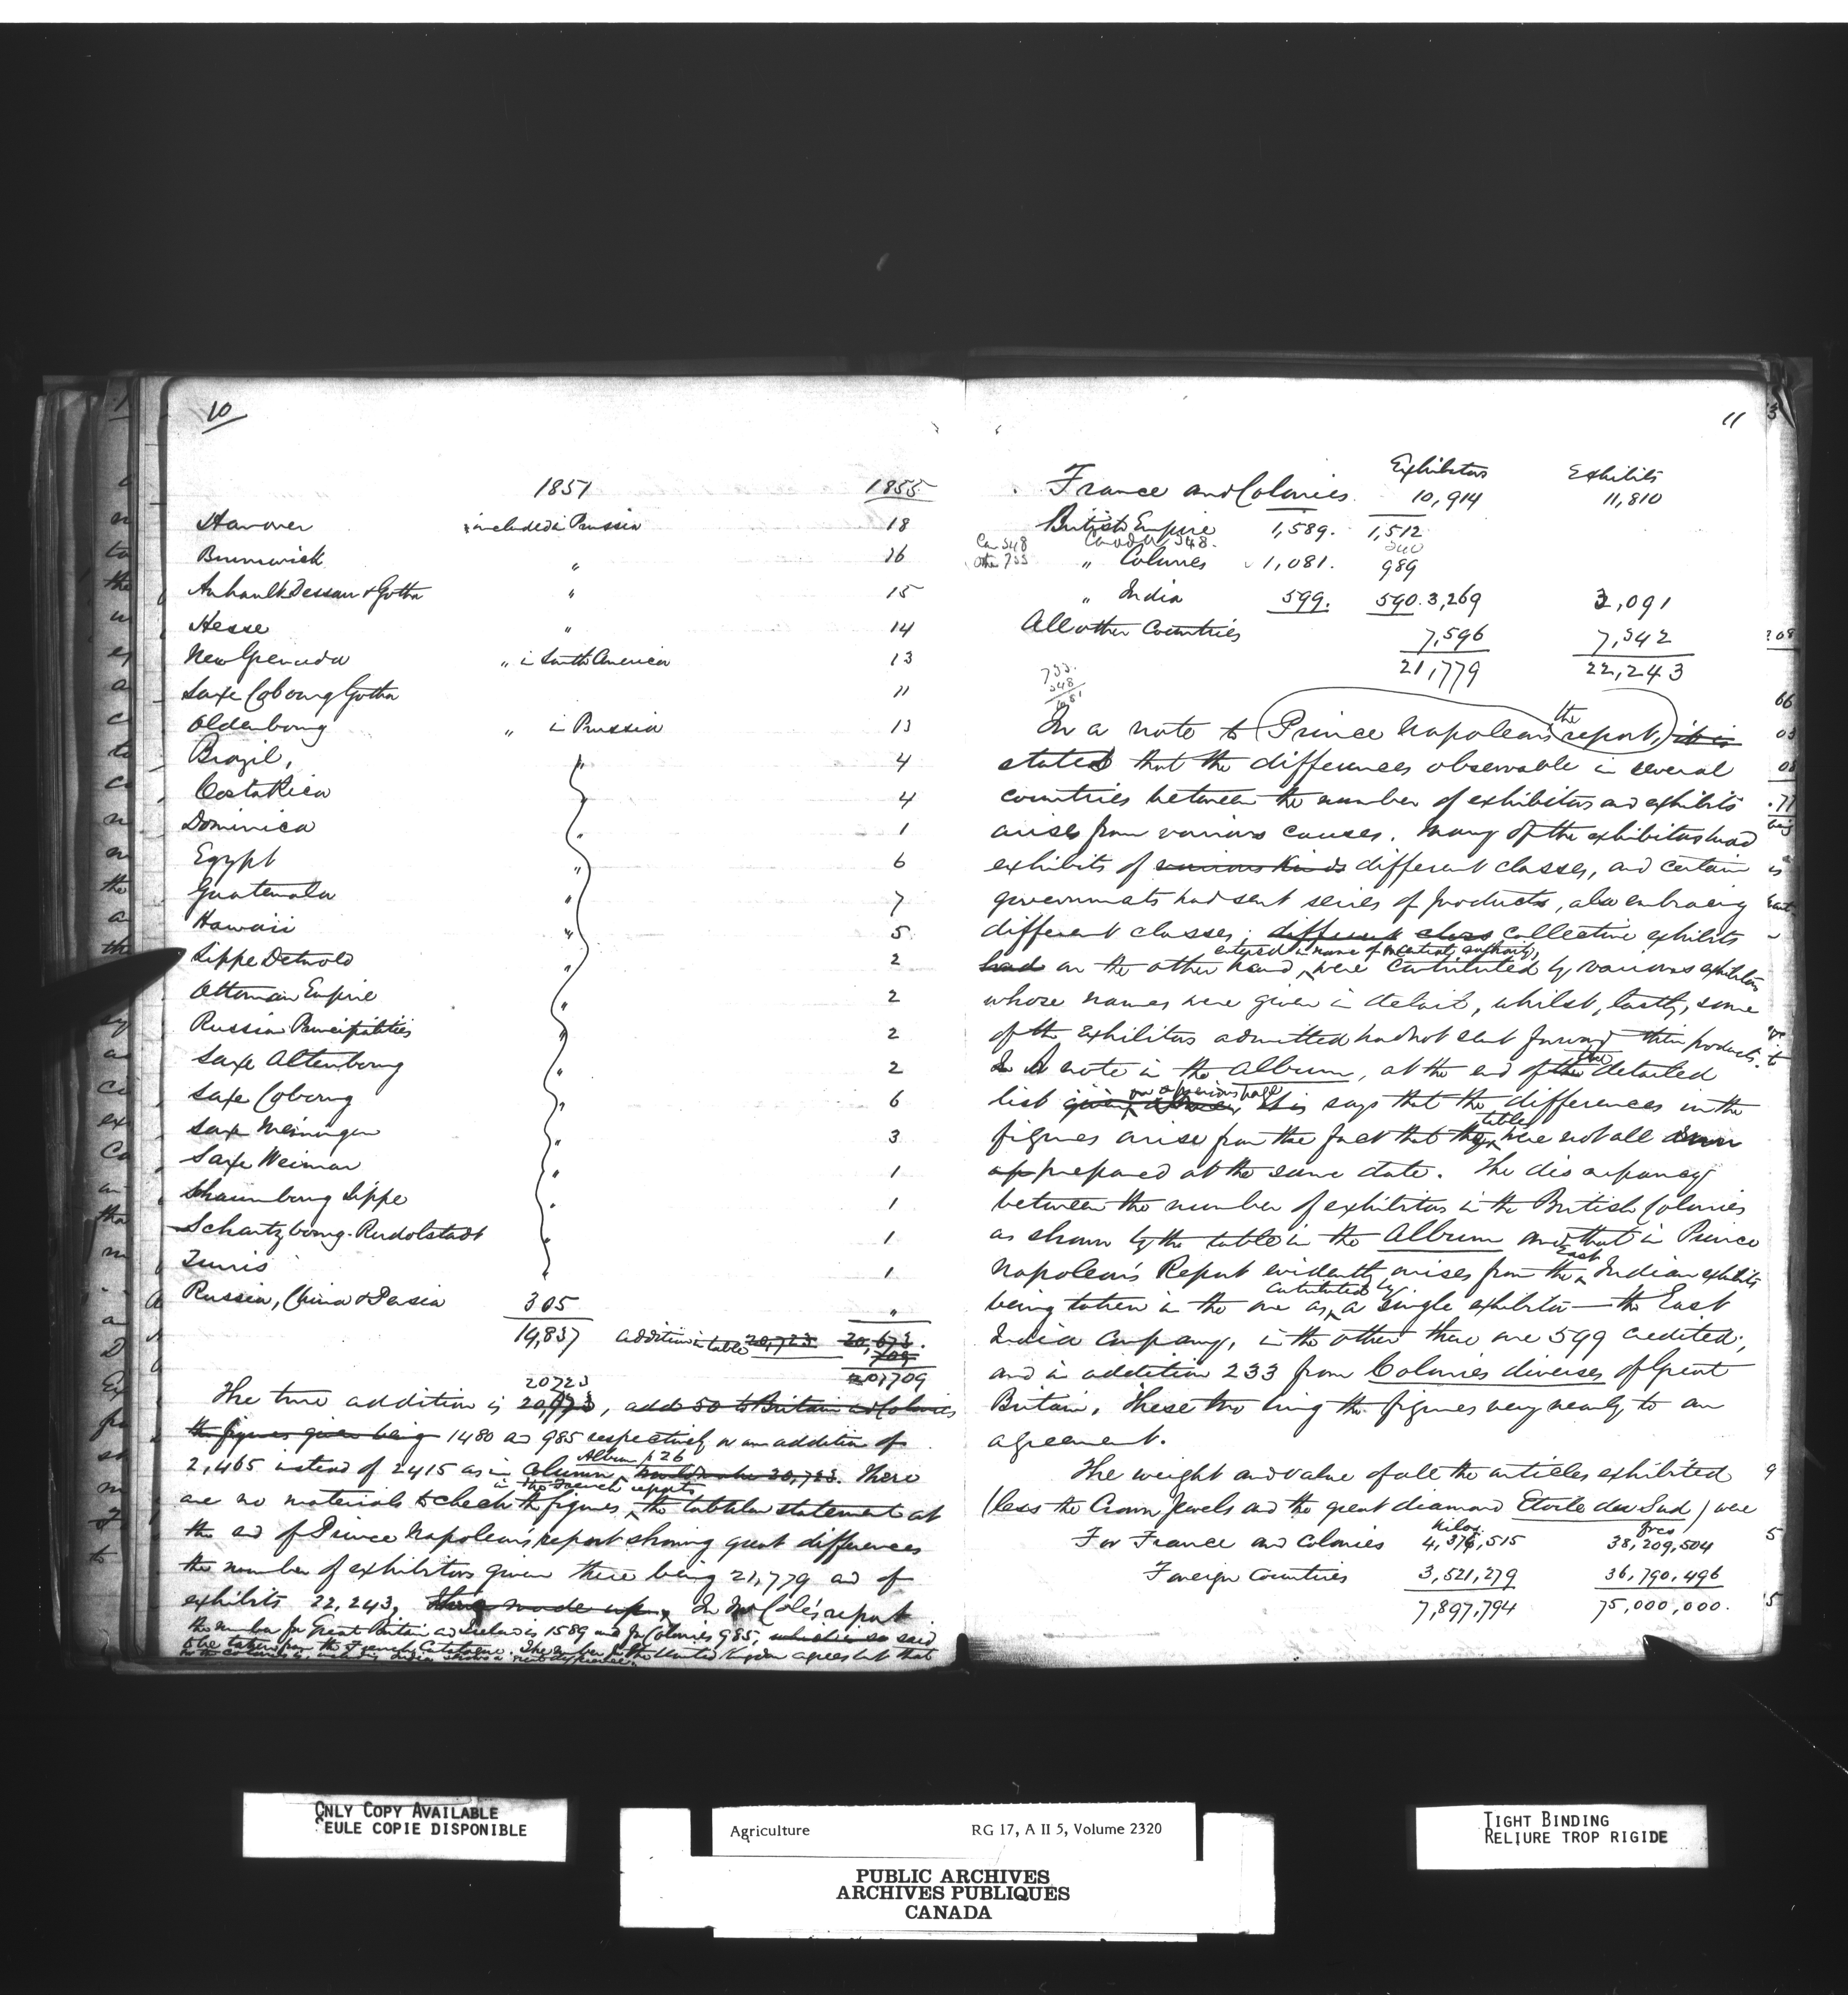 10
1851 1855
Hanover included in Prussia 18
Brunswick " 16
Anhault Dessau & Gotha " 15
Hesse " 14
New Grenada " in South America 13
Saxe Cobourg Gotha 11
Oldenbourg " in Prussia 13
Brazil, " 4
Costa Rica 4
Dominica " 1
Egypt " 6
Guatemala " 7
Hawaii " 5
Lippe Detmold " 2
Ottoman Empire " 2
Russian Principalities " 2
Saxe Altenbourg " 2
Saxe Cobourg " 6
Saxe Meiningen " 3
Saxe Weimar " 1
Schaumbourg Lippe " 1
Schartzbourg-Rudolstadt " 1
Tunis " 1
Russia, China & Persia 305 "
14,837 addition in table 20,723 20,673.
709
20,709
20723
The true addition is 20,673, add 50 to Britain and Colonies
the figures given being 1480 and 985 respectively or an addition of
Album p 26
2,465 instead of 2415 as in column, would make 20,723. There
in two French reports
are no materials to check the figures, the tabular statement at
the end of Prince Napoleon's report showing great differences
the number of exhibitors given there being 21,779 and of
exhibits 22,243, thus made up. In Mr Cole's report
the number for Great Britain and Ireland is 1589 and for Colonies 985, which is so said
to be taken from the French Catalogue. The number for the United Kingdom agrees but that
11
Exhibitors Exhibits
France and Colonies 10,914 11,810
British Empire 1,589. 1,512
Can 348 Canada 348. 340
other 733 " Colonies 1,081. 989
" India 599. 590. 3,269 3,091
All other Countries 7,596 7,342
21,779 22,243
733.
348
1081
the
In a note to Prince Napoleon's report, it is
stated that the differences observable in several
countries between the number of exhibitors and exhibits
arises from various causes. Many of the exhibitors had
exhibits of various kinds different classes, and certain
governments had sent series of products, also embracing
different classes; different class collective exhibits
entered in name of a central authority,
had on the other hand, were contributed by various exhibitors
whose names were given in detail, whilst, lastly, some
of the exhibitors admitted had not sent forward their products.
the
In A note in the Album, at the end of the detailed
on a previous page
list given above, it is says that the differences in the
tables
figures arise from the fact that they were not all drawn
up prepared at the same date. The discrepancy
between the number of exhibitors in the British Colonies
as shown by the table in the Album and that in Prince
East
Napoleon's Report evidently arises from the Indian exhibits
contributed by
being taken in the one as a single exhibitor — the East
India Company, in the other there are 599 credited;
and in addition 233 from Colonies diverses of Great
Britain, these two bring the figures very nearly to an
agreement.
The weight and value of all the articles exhibited
(less the Crown Jewels and the great diamond Etoile du Sud) were
Kilos. frcs
For France and Colonies 4,376,515 38,209,504
Foreign Countries 3,521,279 36,790,496
7,897,794 75,000,000.
ONLY COPY AVAILABLE
SEULE COPIE DISPONIBLE
Agriculture RG 17, A II 5, Volume 2320
PUBLIC ARCHIVES
ARCHIVES PUBLIQUES
CANADA
TIGHT BINDING
RELIURE TROP RIGIDE